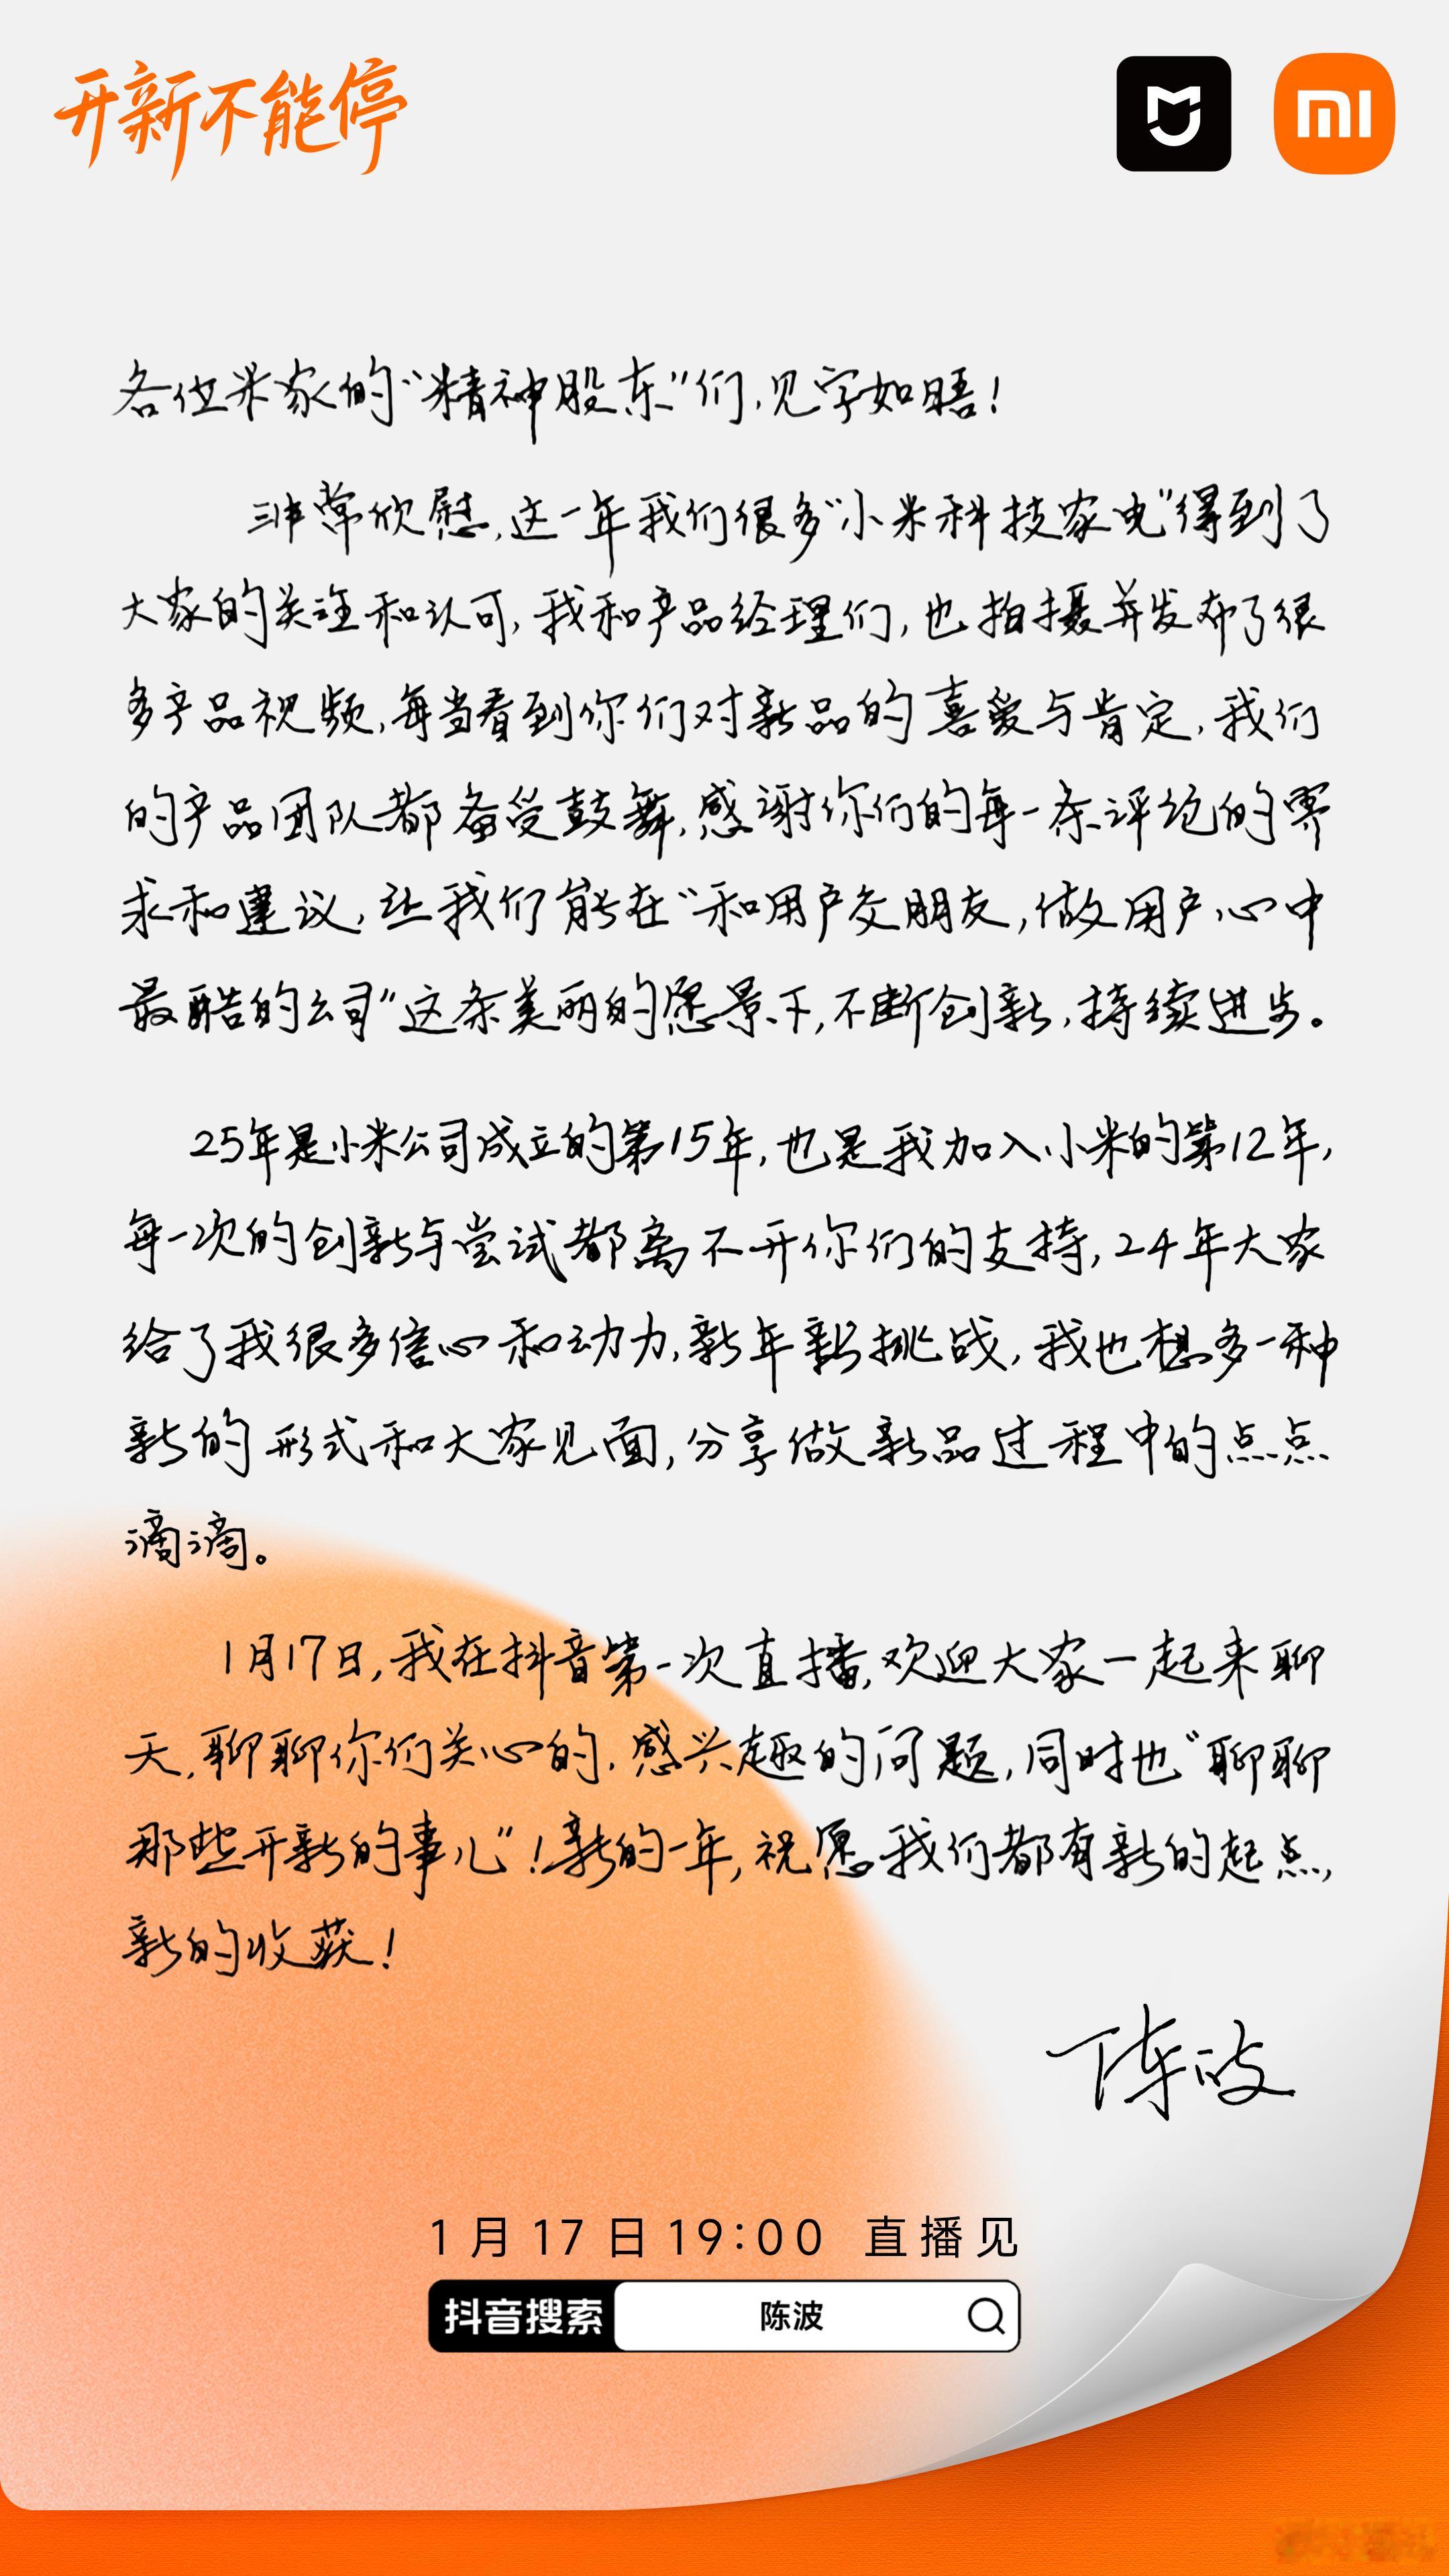 开新不能停
mi
各位米家的“精神股东”们,见字如晤!
非常欣慰,这一年我们很多“小米科技家电”得到了
大家的关注和认可,我和产品经理们,也拍摄并发布了很
多产品视频,每当看到你们对新品的喜爱与肯定,我们
的产品团队都备受鼓舞,感谢你们的每一条评论的需
求和建议,让我们能在“和用户交朋友,做用户心中
最酷的公司”这条美丽的愿景下,不断创新,持续进步。
25年是小米公司成立的第15年,也是我加入小米的第12年,
每一次的创新与尝试都离不开你们的支持,24年大家
给了我很多信心和动力,新年新挑战,我也想多一种
新的形式和大家见面,分享做新品过程中的点点
滴滴。
1月17日,我在抖音第一次直播,欢迎大家一起来聊
天,聊聊你们关心的,感兴趣的问题,同时也“聊聊
那些开新的事儿”!新的一年,祝愿我们都有新的起点,
新的收获!
陈波
1月17日19:00 直播见
抖音搜索 陈波